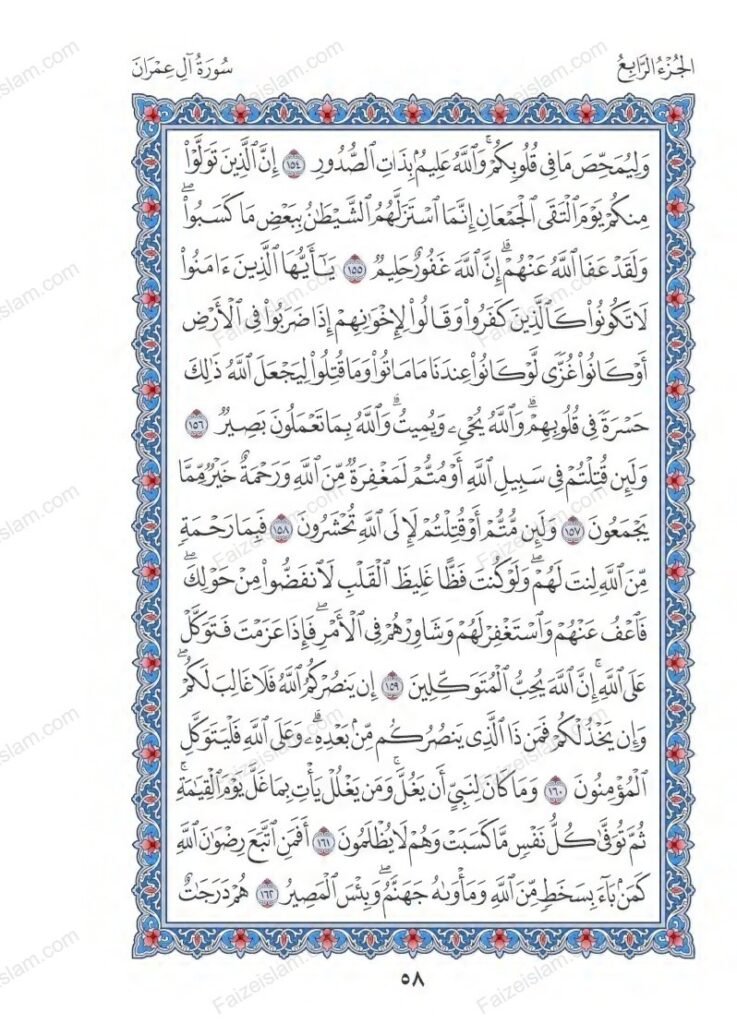 الجُزْءُ الرَّابِعُ
سُورَةُ آلِ عِمْرَانَ
وَلِيُمَحِّصَ مَا فِي قُلُوبِكُمْ ۚ وَٱللَّهُ عَلِيمُۢ بِذَاتِ ٱلصُّدُورِ ١٥٤ إِنَّ ٱلَّذِينَ تَوَلَّوْاْ
مِنكُمْ يَوْمَ ٱلْتَقَى ٱلْجَمْعَانِ إِنَّمَا ٱسْتَزَلَّهُمُ ٱلشَّيْطَـٰنُ بِبَعْضِ مَا كَسَبُواْ ۖ
وَلَقَدْ عَفَا ٱللَّهُ عَنْهُمْ ۗ إِنَّ ٱللَّهَ غَفُورٌ حَلِيمٌ ١٥٥ يَـٰٓأَيُّهَا ٱلَّذِينَ ءَامَنُواْ
لَا تَكُونُواْ كَٱلَّذِينَ كَفَرُواْ وَقَالُواْ لِإِخْوَٰنِهِمْ إِذَا ضَرَبُواْ فِي ٱلْأَرْضِ
أَوْ كَانُواْ غُزًّى لَّوْ كَانُواْ عِندَنَا مَا مَاتُواْ وَمَا قُتِلُواْ لِيَجْعَلَ ٱللَّهُ ذَٰلِكَ
حَسْرَةً فِي قُلُوبِهِمْ ۗ وَٱللَّهُ يُحْيِۦ وَيُمِيتُ ۗ وَٱللَّهُ بِمَا تَعْمَلُونَ بَصِيرٌ ١٥٦
وَلَئِن قُتِلْتُمْ فِي سَبِيلِ ٱللَّهِ أَوْ مُتُّمْ لَمَغْفِرَةٌ مِّنَ ٱللَّهِ وَرَحْمَةٌ خَيْرٌ مِّمَّا
يَجْمَعُونَ ١٥٧ وَلَئِن مُّتُّمْ أَوْ قُتِلْتُمْ لَإِلَى ٱللَّهِ تُحْشَرُونَ ١٥٨ فَبِمَا رَحْمَةٍ
مِّنَ ٱللَّهِ لِنتَ لَهُمْ ۖ وَلَوْ كُنتَ فَظًّا غَلِيظَ ٱلْقَلْبِ لَٱنفَضُّواْ مِنْ حَوْلِكَ ۖ
فَٱعْفُ عَنْهُمْ وَٱسْتَغْفِرْ لَهُمْ وَشَاوِرْهُمْ فِي ٱلْأَمْرِ ۖ فَإِذَا عَزَمْتَ فَتَوَكَّلْ
عَلَى ٱللَّهِ ۚ إِنَّ ٱللَّهَ يُحِبُّ ٱلْمُتَوَكِّلِينَ ١٥٩ إِن يَنصُرْكُمُ ٱللَّهُ فَلَا غَالِبَ لَكُمْ ۖ
وَإِن يَخْذُلْكُمْ فَمَن ذَا ٱلَّذِي يَنصُرُكُم مِّنۢ بَعْدِهِۦ ۗ وَعَلَى ٱللَّهِ فَلْيَتَوَكَّلِ
ٱلْمُؤْمِنُونَ ١٦٠ وَمَا كَانَ لِنَبِيٍّ أَن يَغُلَّ ۚ وَمَن يَغْلُلْ يَأْتِ بِمَا غَلَّ يَوْمَ ٱلْقِيَـٰمَةِ ۚ
ثُمَّ تُوَفَّىٰ كُلُّ نَفْسٍ مَّا كَسَبَتْ وَهُمْ لَا يُظْلَمُونَ ١٦١ أَفَمَنِ ٱتَّبَعَ رِضْوَٰنَ ٱللَّهِ
كَمَنۢ بَآءَ بِسَخَطٍ مِّنَ ٱللَّهِ وَمَأْوَىٰهُ جَهَنَّمُ ۚ وَبِئْسَ ٱلْمَصِيرُ ١٦٢ هُمْ دَرَجَـٰتٌ
٥٨
Faizeislam.com